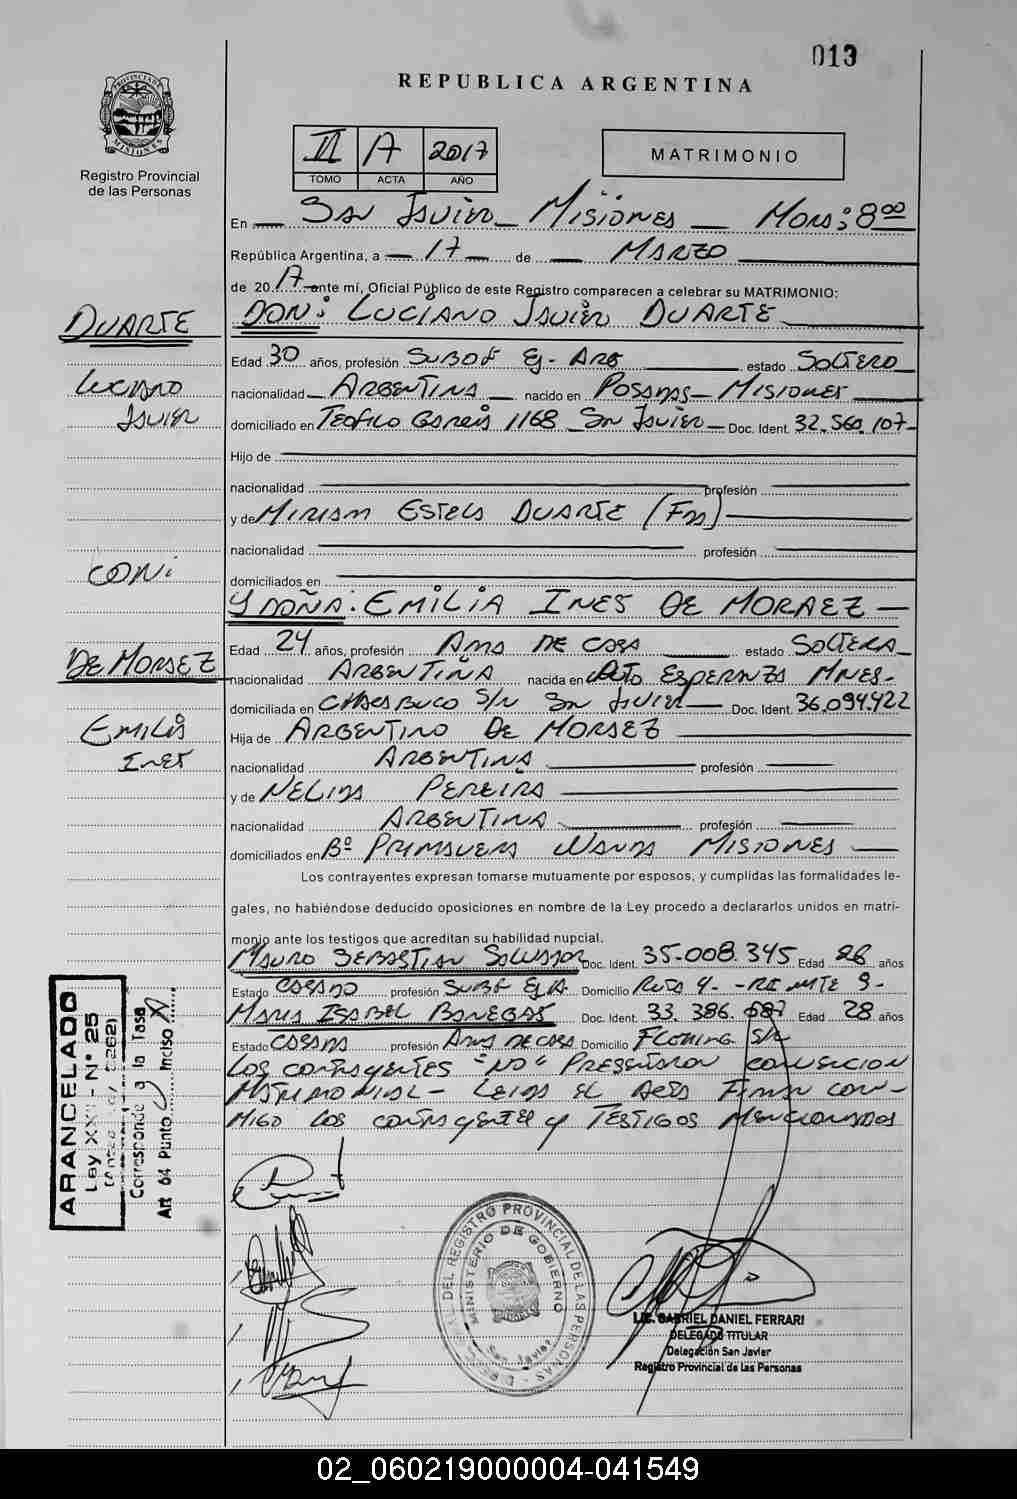 013
REPUBLICA ARGENTINA
PROVINCIA DE MISIONES
Registro Provincial
de las Personas
II A 2017
TOMO ACTA AÑO
MATRIMONIO
En San Javier Misiones Hora: 8 00
República Argentina, a 17 de MARZO
de 2017 ante mí, Oficial Público de este Registro comparecen a celebrar su MATRIMONIO:
DUARTE
DON: LUCIANO JAVIER DUARTE
Edad 30 años, profesión SUBOF EJ- ARG estado SOLTERO
LUCIANO
nacionalidad ARGENTINA nacido en POSADAS - MISIONES
JAVIER
domiciliado en TEOFILO 1168 San JAVIER Doc. Ident. 32.560.107-
Hijo de
nacionalidad profesión
y de MIRIAM ESTELA DUARTE (Fa)
nacionalidad profesión
CON:
domiciliados en
Y DOÑA: EMILIA INES DE MORAEZ
Edad 24 años, profesión AMA DE CASA estado SOLTERA
DE MORAEZ
nacionalidad ARGENTINA nacida en Pto ESPERANZA MNES-
domiciliada en CHACABUCO S/N San JAVIER Doc. Ident. 36.094.422
EMILIA
Hija de ARGENTINO DE MORAEZ
INES
nacionalidad ARGENTINA profesión
y de NELIDA PEREIRA
nacionalidad ARGENTINA profesión
domiciliados en Bº PRIMAVERA WANDA MISIONES
Los contrayentes expresan tomarse mutuamente por esposos, y cumplidas las formalidades le-
gales, no habiéndose deducido oposiciones en nombre de la Ley procedo a declararlos unidos en matri-
monio ante los testigos que acreditan su habilidad nupcial.
MAURO SEBASTIAN SALVADOR Doc. Ident. 35.008.345 Edad 26 años
Estado CASADO profesión Domicilio RUTA 4 - RI MTE 9-
MARIA ISABEL BANEGAS Doc. Ident. 33.386.687 Edad 28 años
Estado CASADA profesión AMA DE CASA Domicilio S/N
LOS CONTRAYENTES "NO" PRESENTARON CONVENCION
MATRIMONIAL - LEIDA EL ACTA FIRMAN CON-
MIGO LOS CONTRAYENTES y TESTIGOS MENCIONADOS
ARANCELADO
Ley XXII - Nº 25
Corresponde a la Tasa
Art 64 Punto Inciso
DEL REGISTRO PROVINCIAL DE LAS PERSONAS
MINISTERIO DE GOBIERNO
San Javier
LIC. GABRIEL DANIEL FERRARI
DELEGADO TITULAR
Delegación San Javier
Registro Provincial de las Personas
02_060219000004-041549